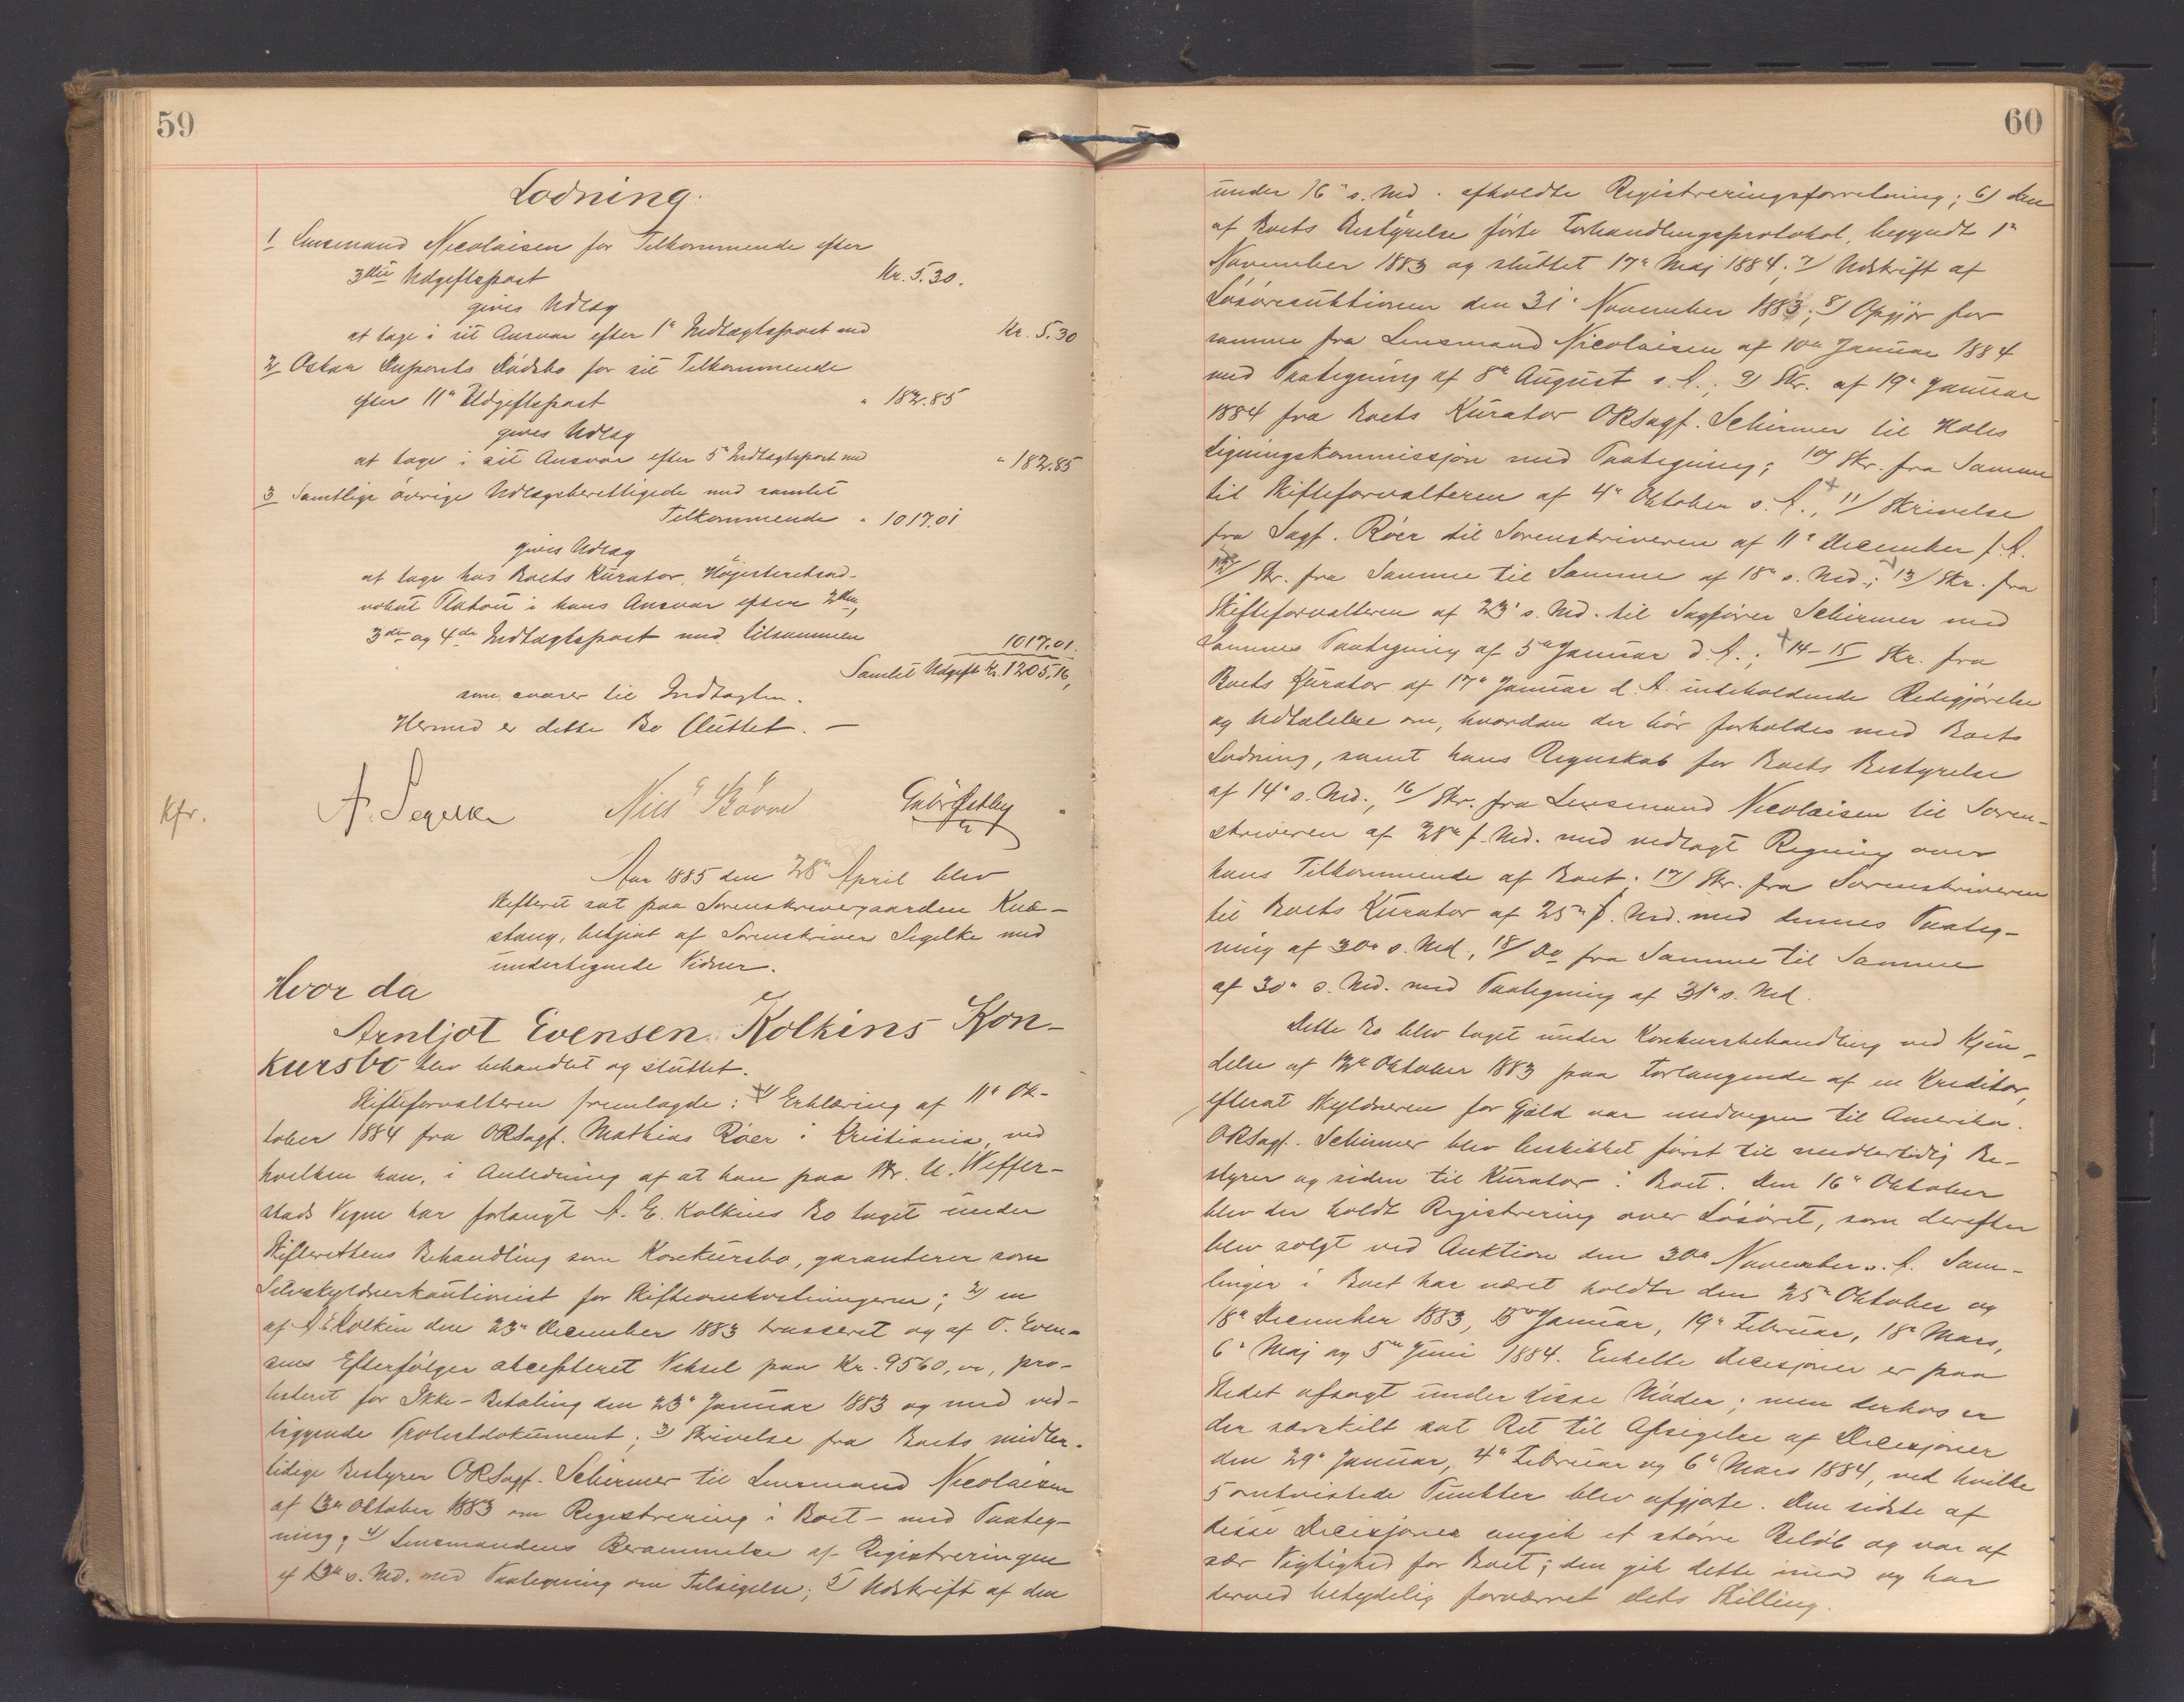 59
Lodning.
1/ Lensmand Nicolaisen for Tilkommende efter
3die Udgiftspost Kr. 5.30.
gives Udlæg
at tage i sit Ansvar efter 1ª Indtægtspost med Kr. 5.30
2/ Oskar Duponts Dødsbo for sit Tilkommende
efter 11ª Udgiftspost " 182.85
gives Udlæg
at tage i sit Ansvar efter 5ª Indtægtspost med " 182.85
3 Samtlige øvrige Udlægsberettigede med samlet
Tilkommende " 1017.01
gives Udlæg
at tage hos Boets Kurator, Højesteretsad-
vokat Platou i hans Ansvar efter 2den,
3die og 4de Indtægtspost med tilsammen 1017.01.
Samlet Udgift Kr. 1205.16,
som svarer til Indtægten.
Hermed er dette Bo sluttet. —
Kfr.
A. Segelke Nils
Aar 1885 den 28ª April blev
Skifteret sat paa Sorenskrivergaarden Knæ-
stang, betjent af Sorenskriver Segelke med
undertegnede Vidner.
Hvor da
Arntjot Evensen Kolkins Kon-
kursbo blev behandlet og sluttet.
Skifteforvalteren fremlagde: 1) Erklæring af 11ª Ok-
tober 1884 fra ORSagf. Mathias Röer i Kristiania, ved
hvilken han, i Anledning af at han paa Hr. U. Weffer-
stads Vegne har forlangt A. E. Kolkins Bo taget under
Skifterettens Behandling som Konkursbo, garanterer som
Selvskyldnerkautionist for Skifteomkostningerne; 2) en
af A E Kolkin den 23ª December 1883 trasseret og af O. Even-
sens Efterfølger akcepteret Veksel paa Kr. 9560,00, pro-
testeret for Ikke-Betaling den 23ª Januar 1883 og med ved-
liggende Protestdokument; 3) Skrivelse fra Boets midler-
tidige Bestyrer ORSagf. Schirmer til Lensmand Nicolaisen
af 13ª Oktober 1883 om Registrering i Boet – med Paateg-
ning; 4) Lensmandens Berammelse af Registreringen
af 13ª s. Md. med Paategning om Tilsigelse; 5) Udskrift af den
60
under 16ª s. Md. afholdte Registreringsforretning; 6) den
af Boets Bestyrelse førte Forhandlingsprotokol, begyndt 1ª
November 1883 og sluttet 17ª Maj 1884; 7) Udskrift af
Løsøreauktionen den 31ª November 1883; 8) Opgjør for
samme fra Lensmand Nicolaisen af 10de Januar 1884
med Paategning af 8de August s. A.; 9) Skr. af 19ª Januar
1884 fra Boets Kurator ORSagf. Schirmer til Hols
Ligningskommissjon med Paategning; 10) Skr. fra Samme
til Skifteforvalteren af 4ª Oktober s. A.; 11) Skrivelse
fra Sagf. Röer til Sorenskriveren af 11ª December f. A.
12) Skr. fra Samme til Samme af 18ª s. Md.; 13) Skr. fra
Skifteforvalteren af 23ª s. Md. til Sagfører Schirmer med
Sammes Paategning af 5te Januar d. A.; 14–15 Skr. fra
Boets Kurator af 17ª Januar d. A. indeholdende Redegjørelse
og Udtalelse om, hvordan der bør forholdes med Boets
Lodning, samt hans Regnskab for Boets Bestyrelse
af 14ª s. Md., 16/ Skr. fra Lensmand Nicolaisen til Soren-
skriveren af 28de f. Md. med vedlagt Regning over
hans Tilkommende af Boet; 17) Skr. fra Sorenskriveren
til Boets Kurator af 25ª f. Md. med dennes Paateg-
ning af 30ª s. Md., 18/ Do fra Samme til Samme
af 30ª s. Md. med Paategning af 31ª s. Md.
Dette Bo blev taget under Konkursbehandling ved Kjen-
delse af 12te Oktober 1883 paa Forlangende af en Kreditor,
efterat Skyldneren for Gjæld var undvegen til Amerika.
ORSagf. Schirmer blev beskikket først til midlertidig Be-
styrer og siden til Kurator i Boet. Den 16ª Oktober
blev der holdt Registrering over Løsøret, som derefter
blev solgt ved Auktion den 30te November s. A. Sam-
linger i Boet har været holdte den 25ª Oktober og
18ª December 1883, 15de Januar, 19ª Februar, 18ª Mars,
6ª Maj og 5te Juni 1884. Enkelte Decisjoner er paa
Stedet afsagt under disse Møder; men derhos er
der særskilt sat Ret til Afsigelse af Decisjoner
den 29ª Januar, 4ª Februar og 6ª Mars 1884, ved hvilke
5 omtvistede Punkter blev afgjorte. Den sidste af
disse Decisjoner angik et større Beløb og var af
sær Vigtighed for Boet; den gik dette imod og har
derved betydelig forværret dets Stilling.